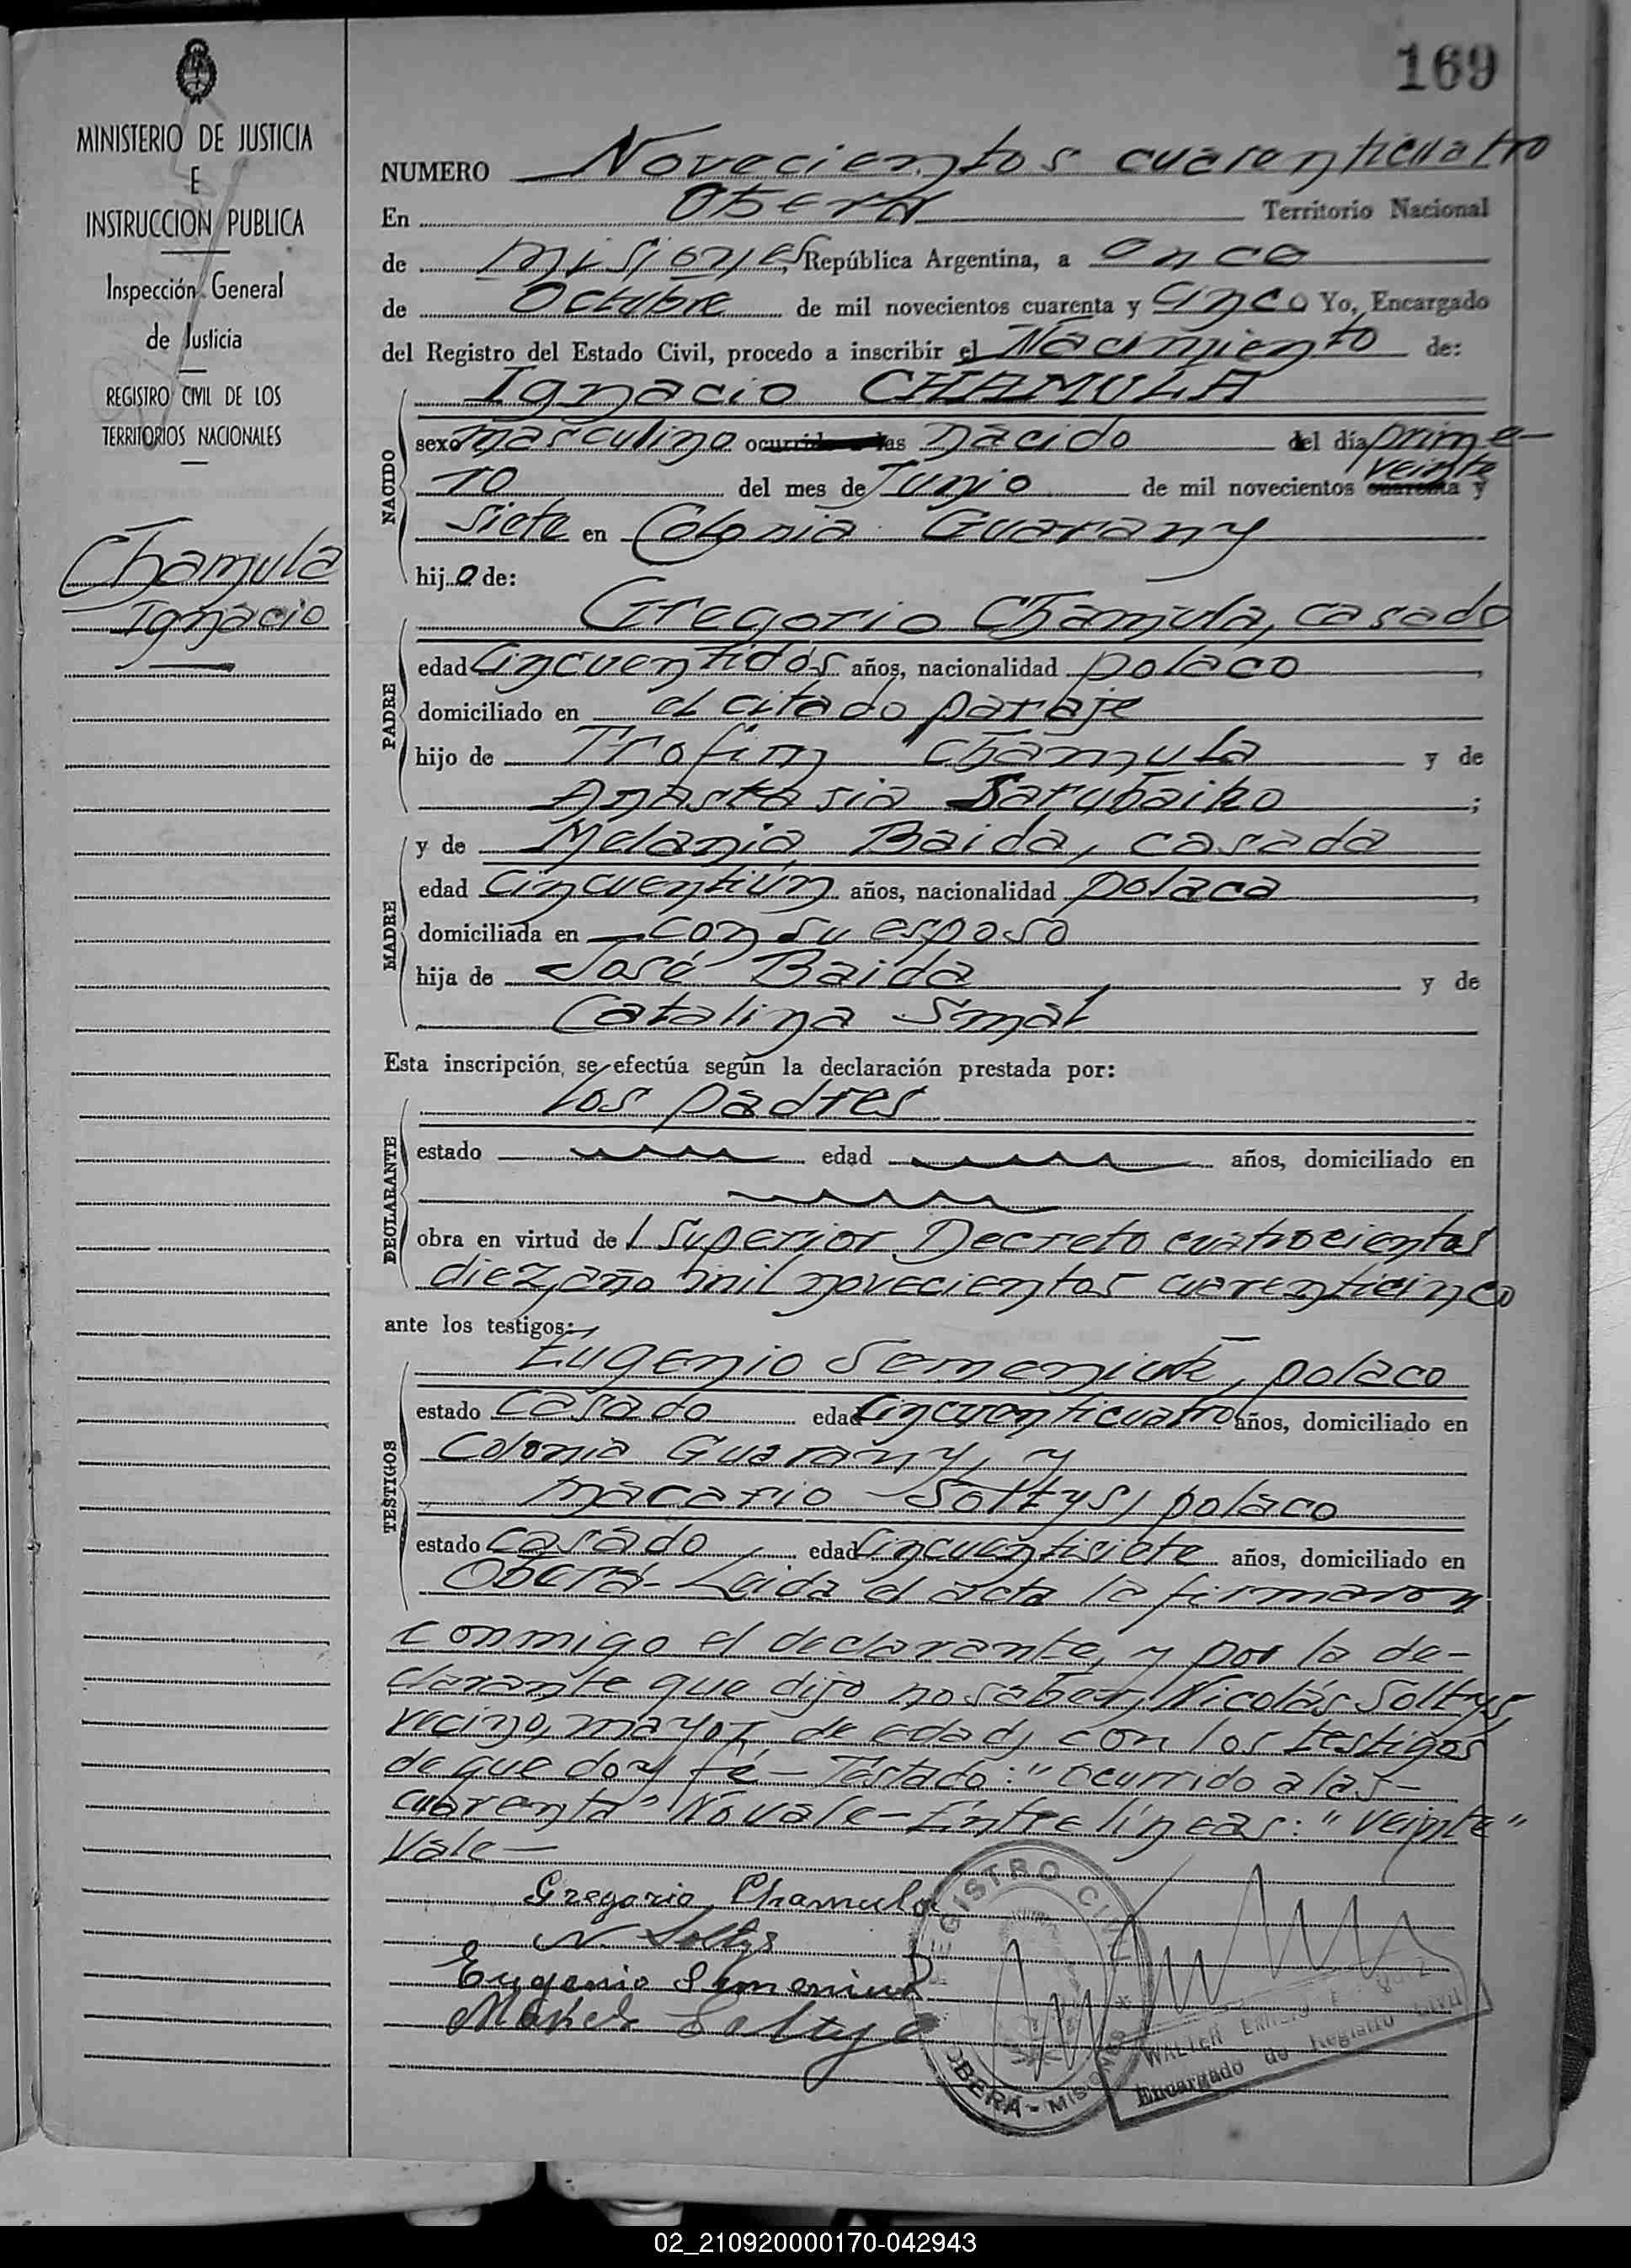 169
MINISTERIO DE JUSTICIA
E
INSTRUCCION PUBLICA
Inspección General
de Justicia
REGISTRO CIVIL DE LOS
TERRITORIOS NACIONALES
Chamula
Ignacio
NUMERO Novecientos cuarenticuatro
En Oberá Territorio Nacional
de Misiones, República Argentina, a once
de Octubre de mil novecientos cuarenta y cinco Yo, Encargado
del Registro del Estado Civil, procedo a inscribir el Nacimiento de:
NACIDO
Ignacio CHAMULA
sexo masculino ocurrido a las nacido del día prime-
veinte
ro del mes de Junio de mil novecientos cuarenta y
siete en Colonia Guarany
hijo de:
PADRE
Gregorio Chamula, casado
edad cincuentidós años, nacionalidad polaco
domiciliado en el citado paraje
hijo de Trofim Chamula y de
Anastasia ;
MADRE
y de Melania Baida, casada
edad cincuentiún años, nacionalidad polaca
domiciliada en con su esposo
hija de José Baida y de
Catalina Smal
Esta inscripción, se efectúa según la declaración prestada por:
DECLARANTE
los padres
estado edad años, domiciliado en
obra en virtud del Superior Decreto cuatrocientos
diez, año mil novecientos cuarenticinco
ante los testigos:
TESTIGOS
Eugenio Semeniuk, polaco
estado casado edad cincuenticuatro años, domiciliado en
Colonia Guarany, y
Macario Soltys, polaco
estado casado edad cincuentisiete años, domiciliado en
Oberá- Leida el acta la firmaron
conmigo el declarante, y por la de-
clarante que dijo no saber, Nicolás Soltys,
vecino, mayor de edad, con los testigos
de que doy fé- Testado: "ocurrido a las-
cuarenta" No vale- Entre líneas: "veinte"
Vale-
Gregorio Chamula
N. Soltys
Eugenio Semeniuk
Soltys
REGISTRO CIVIL
OBERÁ - MISIONES
WALTER
Encargado de Registro Civil
02_210920000170-042943